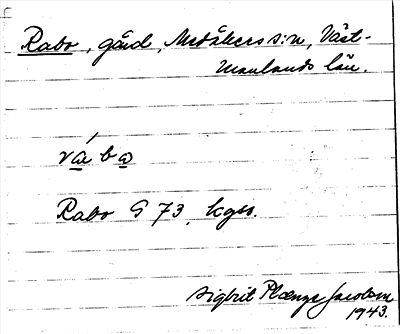 Rabo, gård, Medåkers s:n, Väst-
manlands län.
ra̲´ b o̲
Rabo G 73, kgss.
Sigbrit Plænge Jacobson
1943.